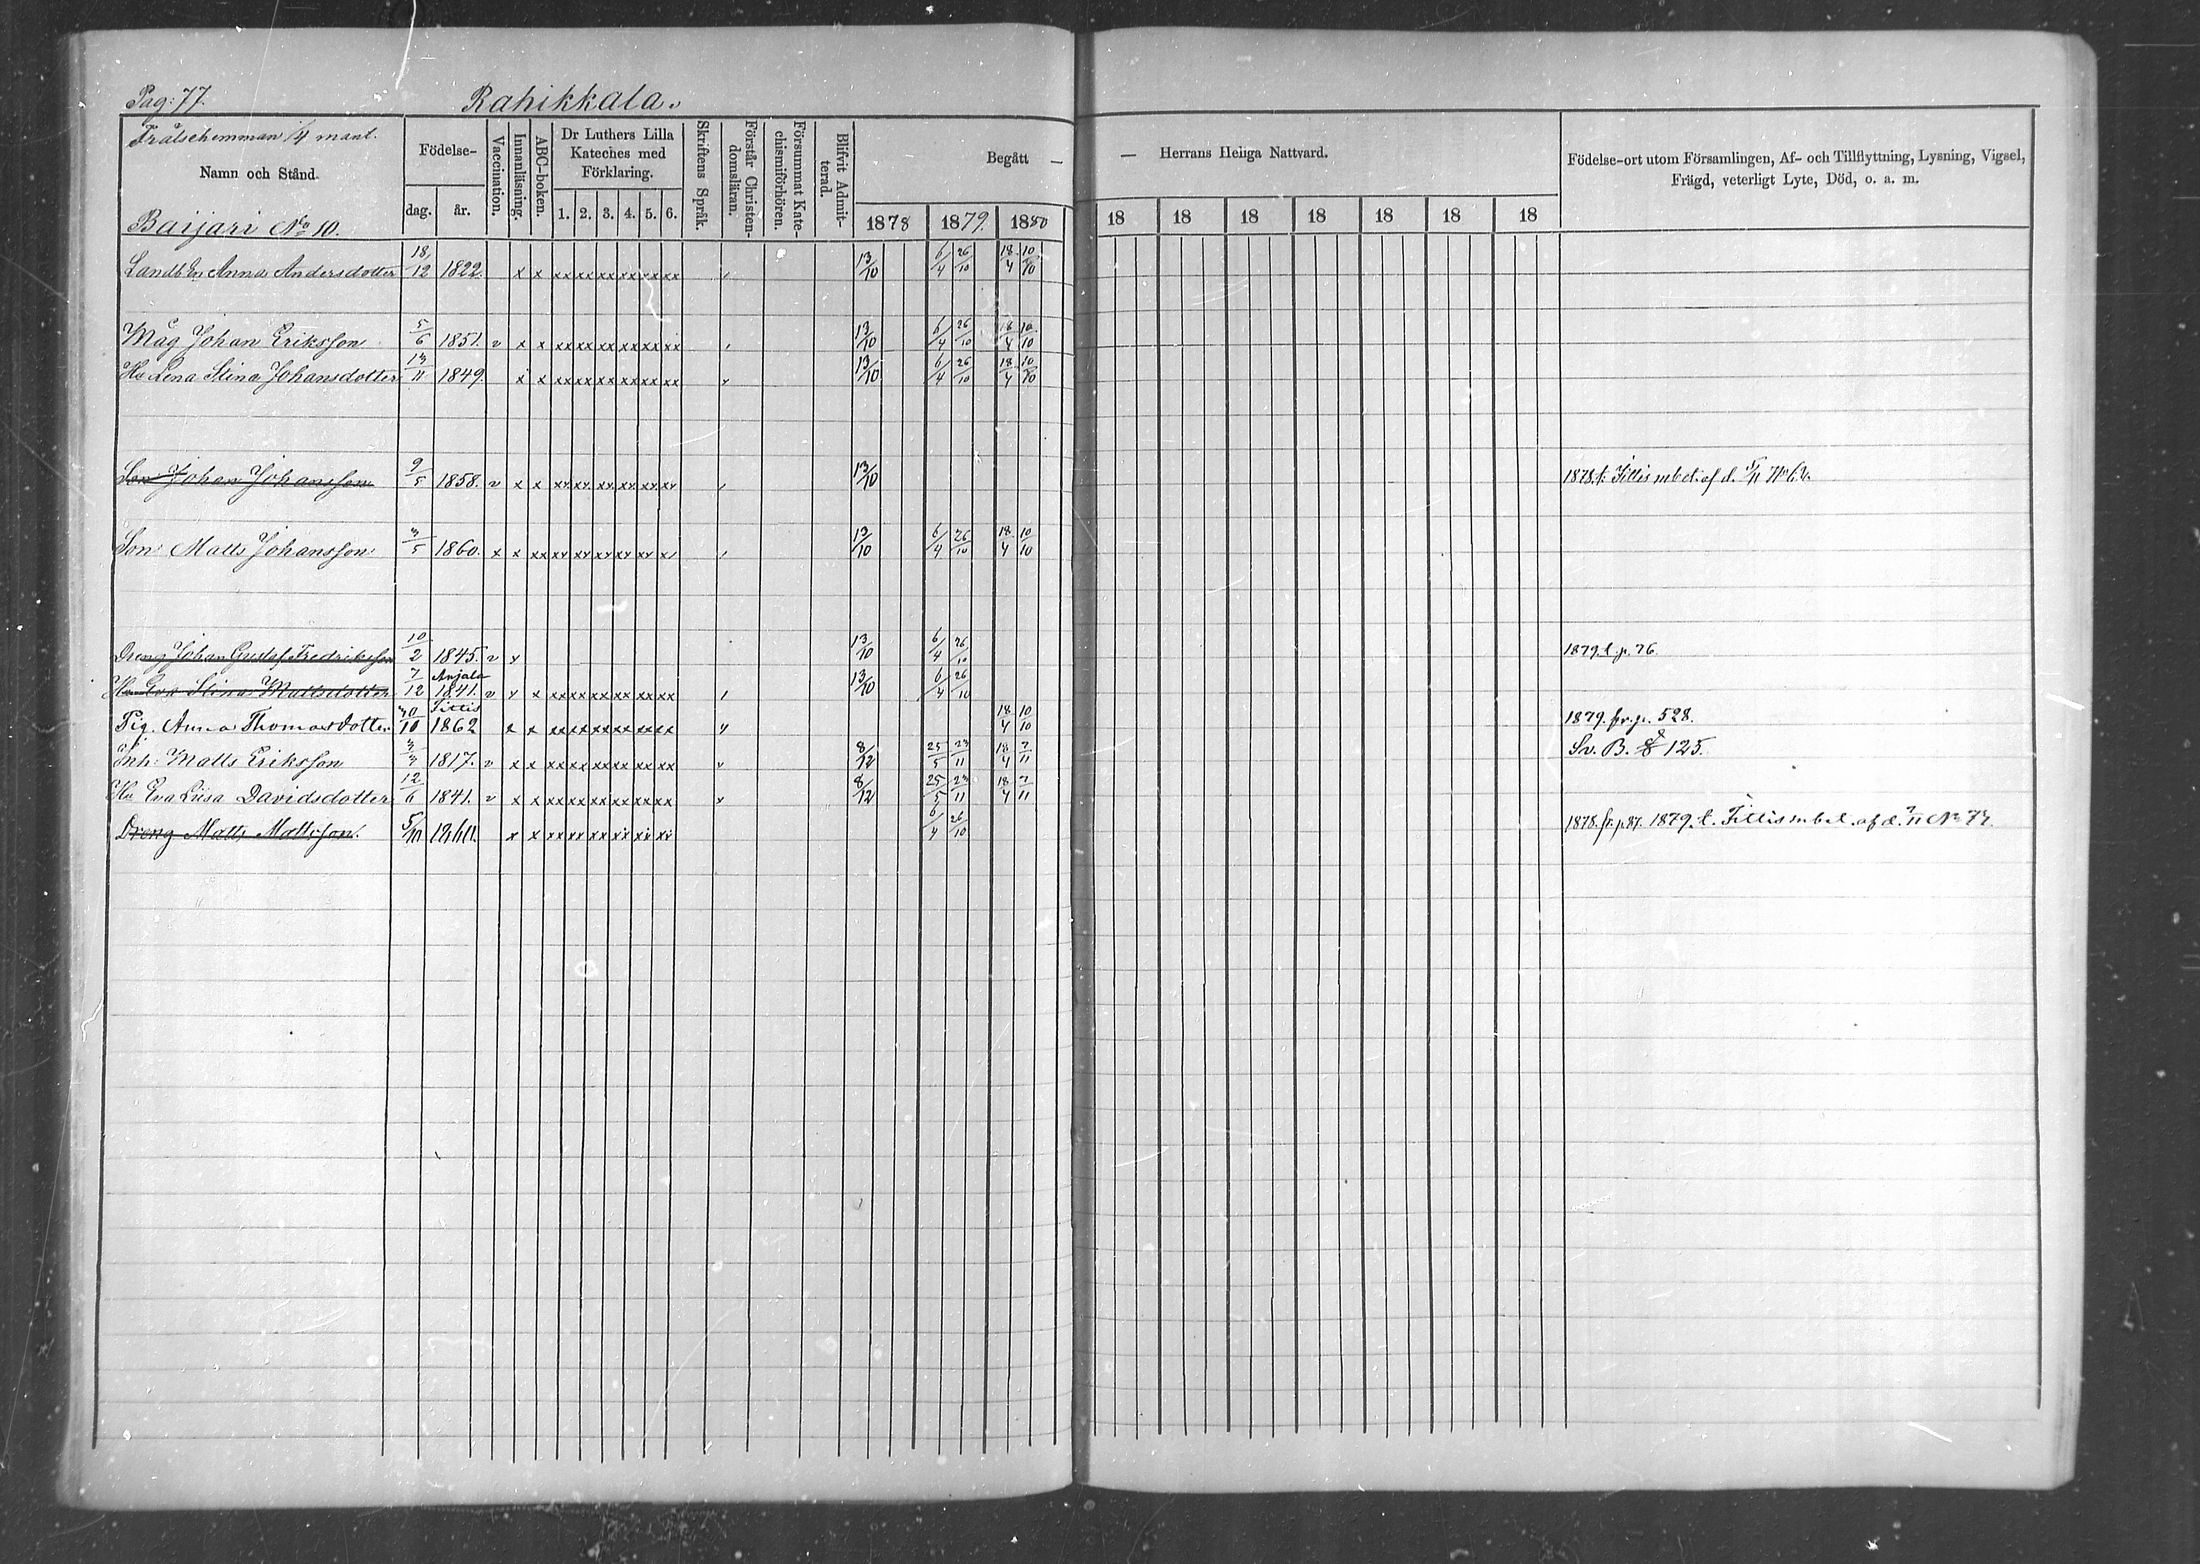 Pag: 77. Rahikkala.
Frälsehemman 1/4 mant.
Namn och Stånd.
Baijari No 10.
Födelse-
dag. år.
Vaccination.
Innanläsning.
ABC-boken.
Dr Luthers Lilla
Kateches med
Förklaring.
1. 2. 3. 4. 5. 6.
Skriftens Språk.
Förstår Christen-
domsläran.
Försummat Kate-
chismiförhören.
Blifvit Admit-
terad.
Begått —
1878 1879. 1880
— Herrans Heliga Nattvard.
18 18 18 18 18 18 18
Födelse-ort utom Församlingen, Af- och Tillflyttning, Lysning, Vigsel,
Frägd, veterligt Lyte, Död, o. a. m.
Landb. En. Anna Andersdotter 18/12 1822. x x xx xx xx xx xx xx 13/10 6/4 26/10 18/4 10/10
Måg Johan Eriksson 5/6 1851. v x x xx xx xx xx xx xx 13/10 6/4 26/10 18/4 10/10
Hu Lena Stina Johansdotter 13/11 1849. x x xx xx xx xx xx xx 13/10 6/4 26/10 18/4 10/10
Son Johan Johansson 9/5 1858. v x x xx xx xx xx xx xx 13/10 1878. t. Sittis mbet. af d.
Son: Matts Johansson 3/5 1860. x x xx xx xx xx xx xx 13/10 6/4 26/10 18/4 10/10
Dreng Johan Gustaf Fredriksson 10/2 1845. v x 13/10 6/4 26/10 1879. t. p. 76.
Anjala
Hu Eva Stina Mattsdotter 7/12 1841. v x x xx xx xx xx xx xx 13/10 6/4 26/10
Sittis
Pig. Anna Thomasdotter 30/10 1862 x x xx xx xx xx xx xx 18/4 10/10 1879. fr. p. 528.
Inh: Matts Eriksson 3/3 1817. v x x xx xx xx xx xx xx 8/12 25/5 23/11 18/4 7/11 Sv. B. 125.
Hu Eva Liisa Davidsdotter 12/6 1841. v x x xx xx xx xx xx xx 8/12 25/5 23/11 18/4 7/11
Dreng Matts Mattsson. 5/10 1860. x x xx xx xx xx xx xx 6/4 26/10 1878. fr. p. 87. 1879. t. Sittis mbet. af d. No 77.